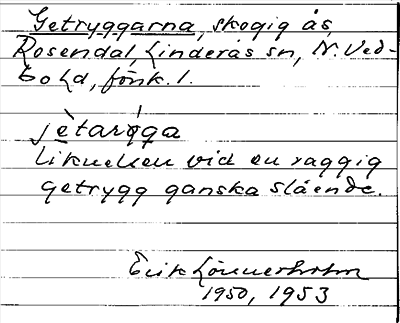 Getryggarna, skogig ås,
Rosendal, Linderås sn, N. Ved-
bo hd, förk. 1.
jètarýga
Likneken vid en raggig
getrygg ganska slående.
Erik Lönnerholm
1950, 1953